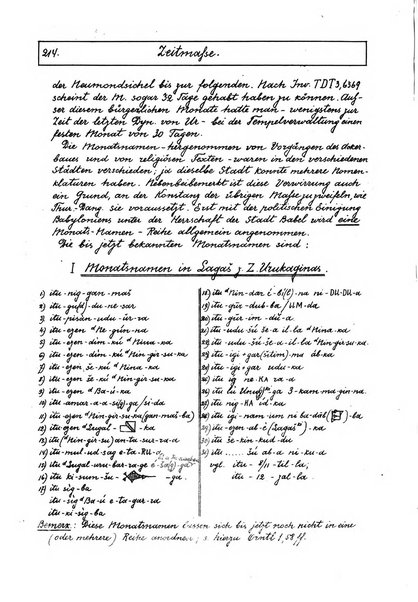 214. Zeitmaße.
der Neumondsichel bis zur folgenden. Nach Inv. TDT 3, 6369
scheint der M. sogar 32 Tage gehabt haben zu können. Auf-
ser diesem bürgerlichen Monate hatte man - wenigstens zur
Zeit der letzten Dyn. von Ur - bei der Tempelverwaltung einen
festen Monat von 30 Tagen.
Die Monatsnamen - hergenommen von Vorgängen des Acker-
baues und von religiösen Texten - waren in den verschiedenen
Städten verschieden; ja dieselbe Stadt konnte mehrere Nomen-
klaturen haben. Nebenbeibemerkt ist diese Verwirrung auch
ein Grund, an der Konstanz der übrigen Maße zu zweifeln, wie
Thur-Dang. sie voraussetzt. Erst mit der politischen Einigung
Babyloniens unter der Herrschaft der Stadt Babel wird eine
Monats-Namen-Reihe allgemein angenommen.
Die bis jetzt bekannten Monatsnamen sind:
I Monatsnamen in Lagaš z. Z. Urukaginas.
1) itu-nig-gan-maš
2) itu-gu(d)-du-ne-sar
3) itu-pisán-udu-úr-ra
4) itu-ezen dNe-gún-na
5) itu-ezen-dim-kú dNina-ka
6) itu-ezen-dim-kú dNin-gir-su-ka
7) itu-ezen-še-kú dNina-ka
8) itu-ezen-še-kú dNin-gir-su-ka
9) itu-ezen dBa-ú-ka
10) itu-amar-a-a-si(g)-ga/si-da
11) itu-ezen dNin-gir-su-ka(gan-maš-ba)
12) itu-ezen dLugal-
13) itu-(Nin-gir-su)an-ta-sur-ra-a
14) itu-mul-ud sag-e-ta-RU-a
15) itu-dLugal-uru-bar-ra-ge
16) itu ki-sum-šu- -ga.
17) itu síg-ba
itu-síg dBa-ú e-ta-gar-ra
itu-ezen síg-ba
18) itu dNin-dar é-bi(l)-na ni-DU-DU-a
19) itu-gúr-dub-ba/im-da
20) itu-gúr-im-du-a
21) itu-udu-šú-še-a il-la dNina-ka
22) itu-udu-šú-še-a il-la dNin-gir-su-ka
itu ig ne-KA ra-a
itu nig-KA id-ka
itu še-kin-kud-du
31) itu ..... šú ab-a ni-ku-a
vgl. itu- 9/11-til-la;
itu - 12 -jal-la.
Bemerk: Diese Monatsnamen lassen sich bis jetzt noch nicht in eine
(oder mehrere) Reihe anordnen; s. hierzu